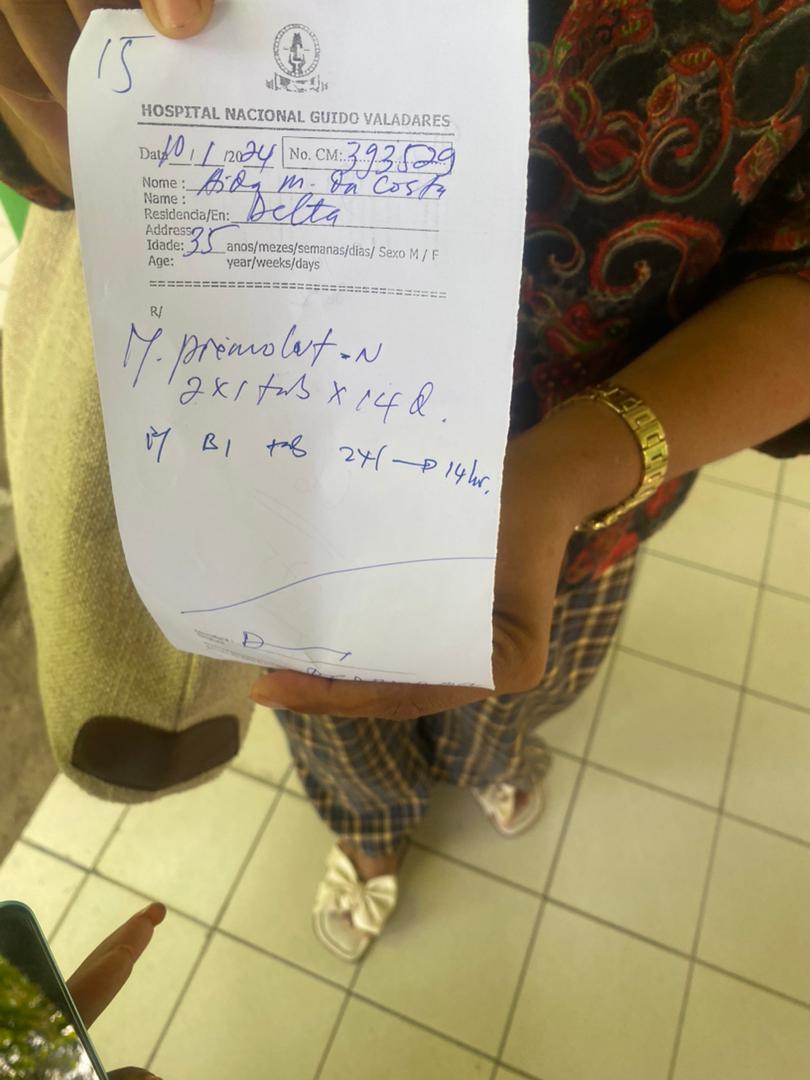 15
HOSPITAL NACIONAL GUIDO VALADARES
Data 10/1/2024 No. CM: 393529
Nome: Aida M. Da Costa
Name:
Residencia/En: Delta
Address
Idade: 35 anos/mezes/semanas/dias/ Sexo M / F
Age: year/weeks/days
R/
primolut-N
2x1 tab x 14
B1 tab 2x1